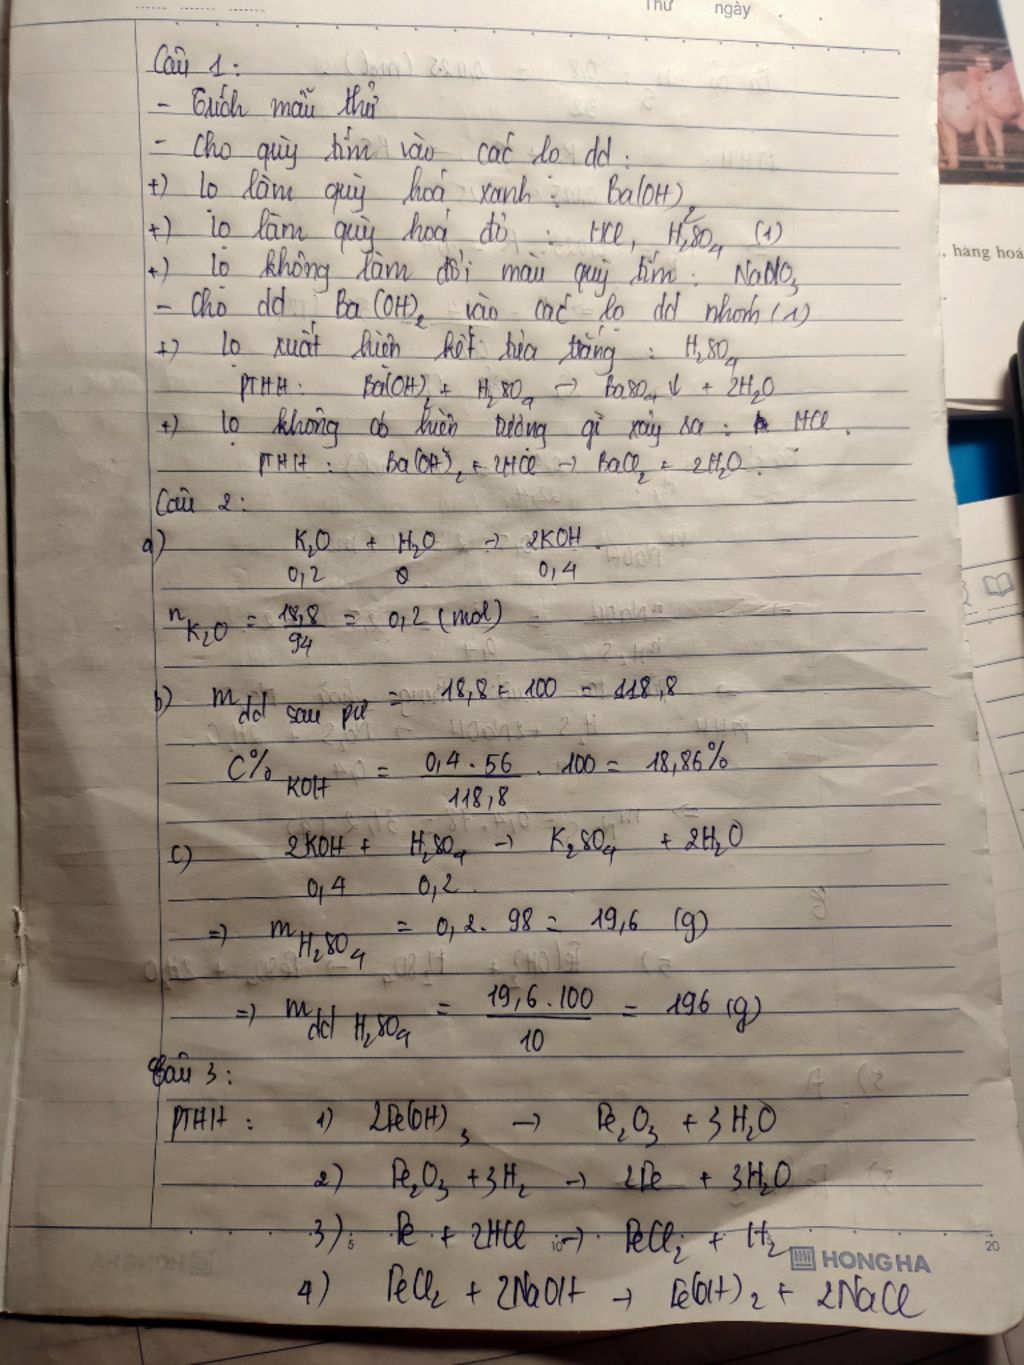 Thứ ngày
Câu 1:
- Trích mẫu thử
- Cho quỳ tím vào các lọ dd:
+) lọ làm quỳ hoá xanh: Ba(OH)₂
+) lọ làm quỳ hoá đỏ: HCl, H₂SO₄ (1)
+) lọ không làm đổi màu quỳ tím: NaNO₃
- Cho dd Ba(OH)₂ vào các lọ dd nhóm (1)
+) lọ xuất hiện kết tủa trắng: H₂SO₄
PTHH: Ba(OH)₂ + H₂SO₄ → BaSO₄ ↓ + 2H₂O
+) lọ không có hiện tượng gì xảy ra: HCl.
PTHH: Ba(OH)₂ + 2HCl → BaCl₂ + 2H₂O.
Câu 2:
a) K₂O + H₂O → 2KOH.
0,2 0,4
nK₂O = 18,8/94 = 0,2 (mol)
b) mdd sau pư = 18,8 + 100 = 118,8
C% KOH = 0,4 . 56/118,8 . 100 = 18,86%
c) 2KOH + H₂SO₄ → K₂SO₄ + 2H₂O
0,4 0,2.
=) mH₂SO₄ = 0,2. 98 = 19,6 (g)
=) mdd H₂SO₄ = 19,6 . 100/10 = 196 (g)
Câu 3:
PTHH: 1) 2Fe(OH)₃ → Fe₂O₃ + 3H₂O
2) Fe₂O₃ + 3H₂ → 2Fe + 3H₂O
3) Fe + 2HCl → FeCl₂ + H₂
5 10 20
HONG HA
4) FeCl₂ + 2NaOH → Fe(OH)₂ + 2NaCl
, hàng hoá